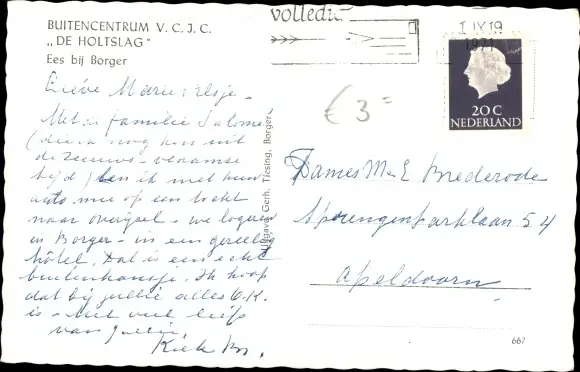 BUITENCENTRUM V. C. J. C.
„DE HOLTSLAG"
Ees bij Borger
volledig
1 IX 19
1971
20 C
NEDERLAND
€ 3 =
Lieve Marie, Elsje -
Met de familie Salomé
(die ik nog ken uit
de Zeeuws-Vlaamse
tijd) ben ik met hun
auto mee op een tocht
naar Overijsel - we logeren
in Borger - in een gezellig
hôtel. Dat is een echt
buitenkansje. Ik hoop
dat bij jullie alles O.K.
is - Met veel liefs
van jullie,
Kiek Br.
Uitgave: Gerh. Tiesing, Borger
Dames M en E Brederode
Sprengenparklaan 54
Apeldoorn
667